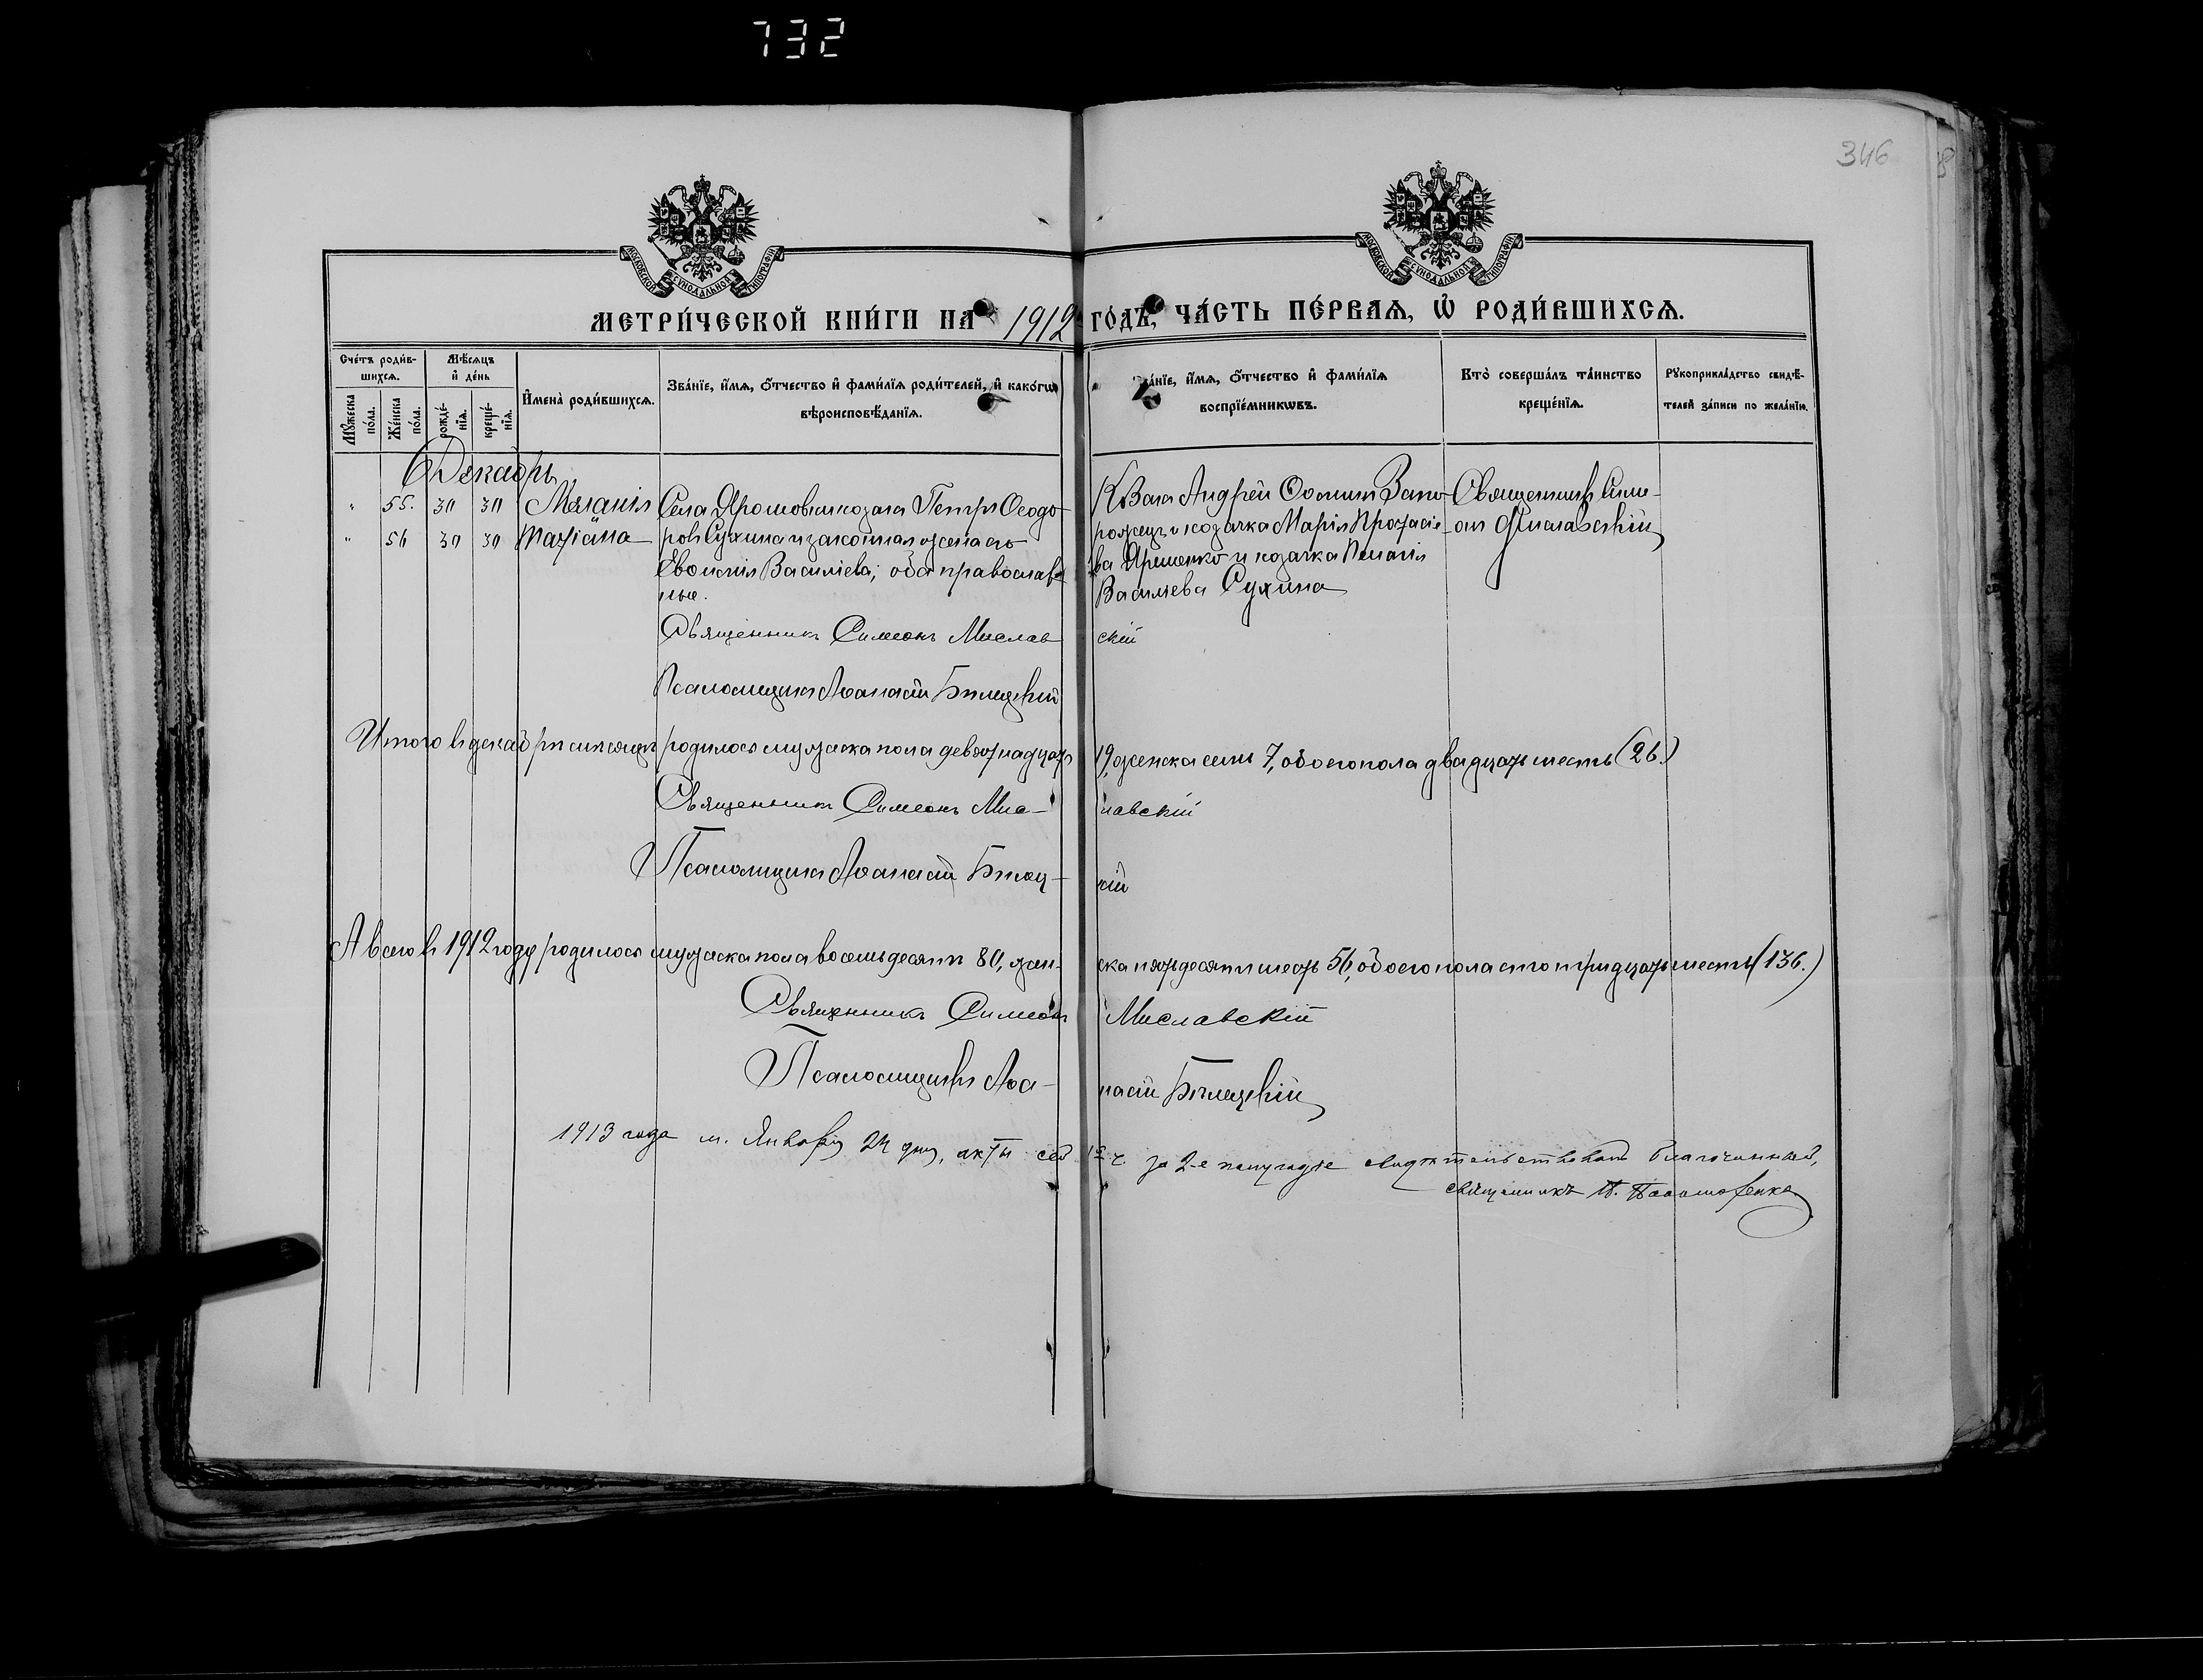 732
346
МОСКОВСКОЙ СѴНОДАЛЬНОЙ ТИПОГРАФІИ
МОСКОВСКОЙ СѴНОДАЛЬНОЙ ТИПОГРАФІИ
МЕТРИ́ЧЕСКОЙ КНИ́ГИ НА 1912 ГО́ДЪ, ЧА́СТЬ ПЕ́РВАѦ, Ѡ҆ РОДИ́ВШИХСѦ.
Сче́тъ роди́в-
шихсѧ.
Мꙋ́жеска по́ла.
Же́нска по́ла.
Мѣ́сѧцъ
и҆ де́нь
рожде́-
нїѧ.
креще́-
нїѧ.
И҆мена̀ роди́вшихсѧ.
Зва́нїе, и҆́мѧ, ѻ҆́тчество и҆ фами́лїѧ роди́телей, и҆ како́гѡ
вѣроисповѣ́данїѧ.
Зва́нїе, и҆́мѧ, ѻ҆́тчество и҆ фами́лїѧ
воспрїе́мникѡвъ.
Кто̀ соверша́лъ та́инство
креще́нїѧ.
Рꙋкоприкла́дство свидѣ́-
телей за́писи по жела́нїю.
Декабрь
" 55. 30 30 Меланія Села Ярошовки козакъ Петръ Ѳеодо-
" 56 30 30 Татіана ровъ Сухина и законная жена его
Евѳимія Василіева; оба православ-
ные.
Козакъ Андрей Ѳоминъ Запо-
рожецъ и козачка Марія Протасіе-
ва Яременко и козачка
Василіева Сухина
Священникъ Симе-
онъ Миславскій
Священникъ Симеонъ Миславскій
Псаломщикъ Аѳанасій Билецкій
Итого въ декабрѣ мѣсяцѣ родилось мужаска пола девятнадцать 19, женска семь 7, обоего пола двадцать шесть (26.)
Священникъ Симеонъ Миславскій
Псаломщикъ Аѳанасій Билецкій
А всего въ 1912 году родилось мужаска пола восемьдесятъ 80, женска пятьдесятъ шесть 56, обоего пола сто тридцать шесть (136.)
Священникъ Симеонъ Миславскій
Псаломщикъ Аѳанасій Билецкій
1913 года м. Января 24 дня, акты сей 1й ч. за 2-е полугодіе свидѣтельствовалъ благочинный,
священникъ